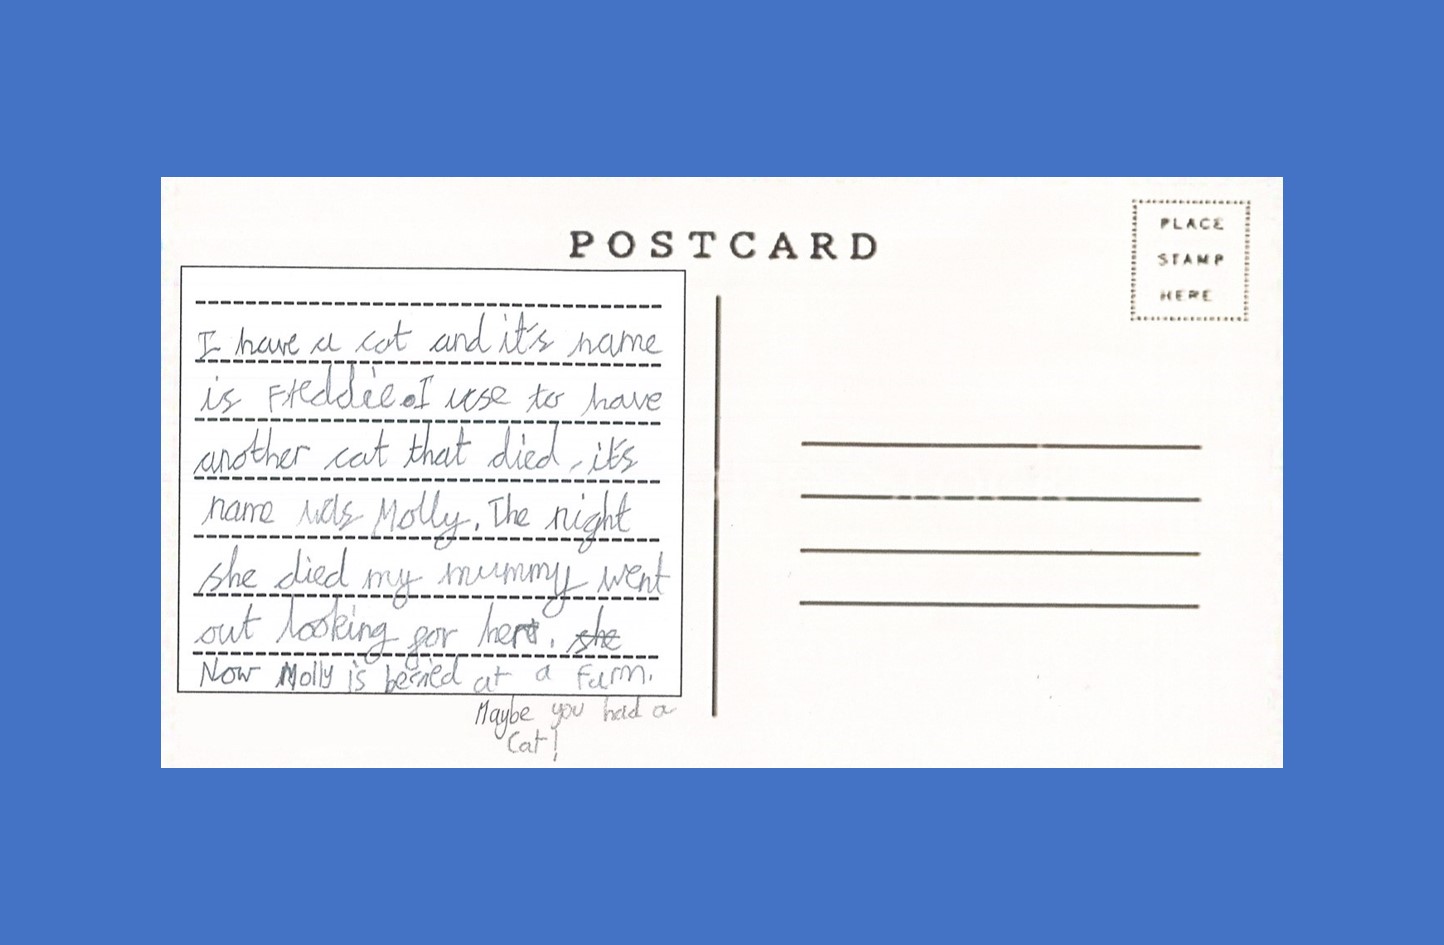 POSTCARD
PLACE
STAMP
HERE
I have a cat and it's name
is Freddie. I use to have
another cat that died, it's
name was Molly. The night
she died my mummy went
out looking for her. she
Now Molly is beried at a farm.
Maybe you had a
Cat!